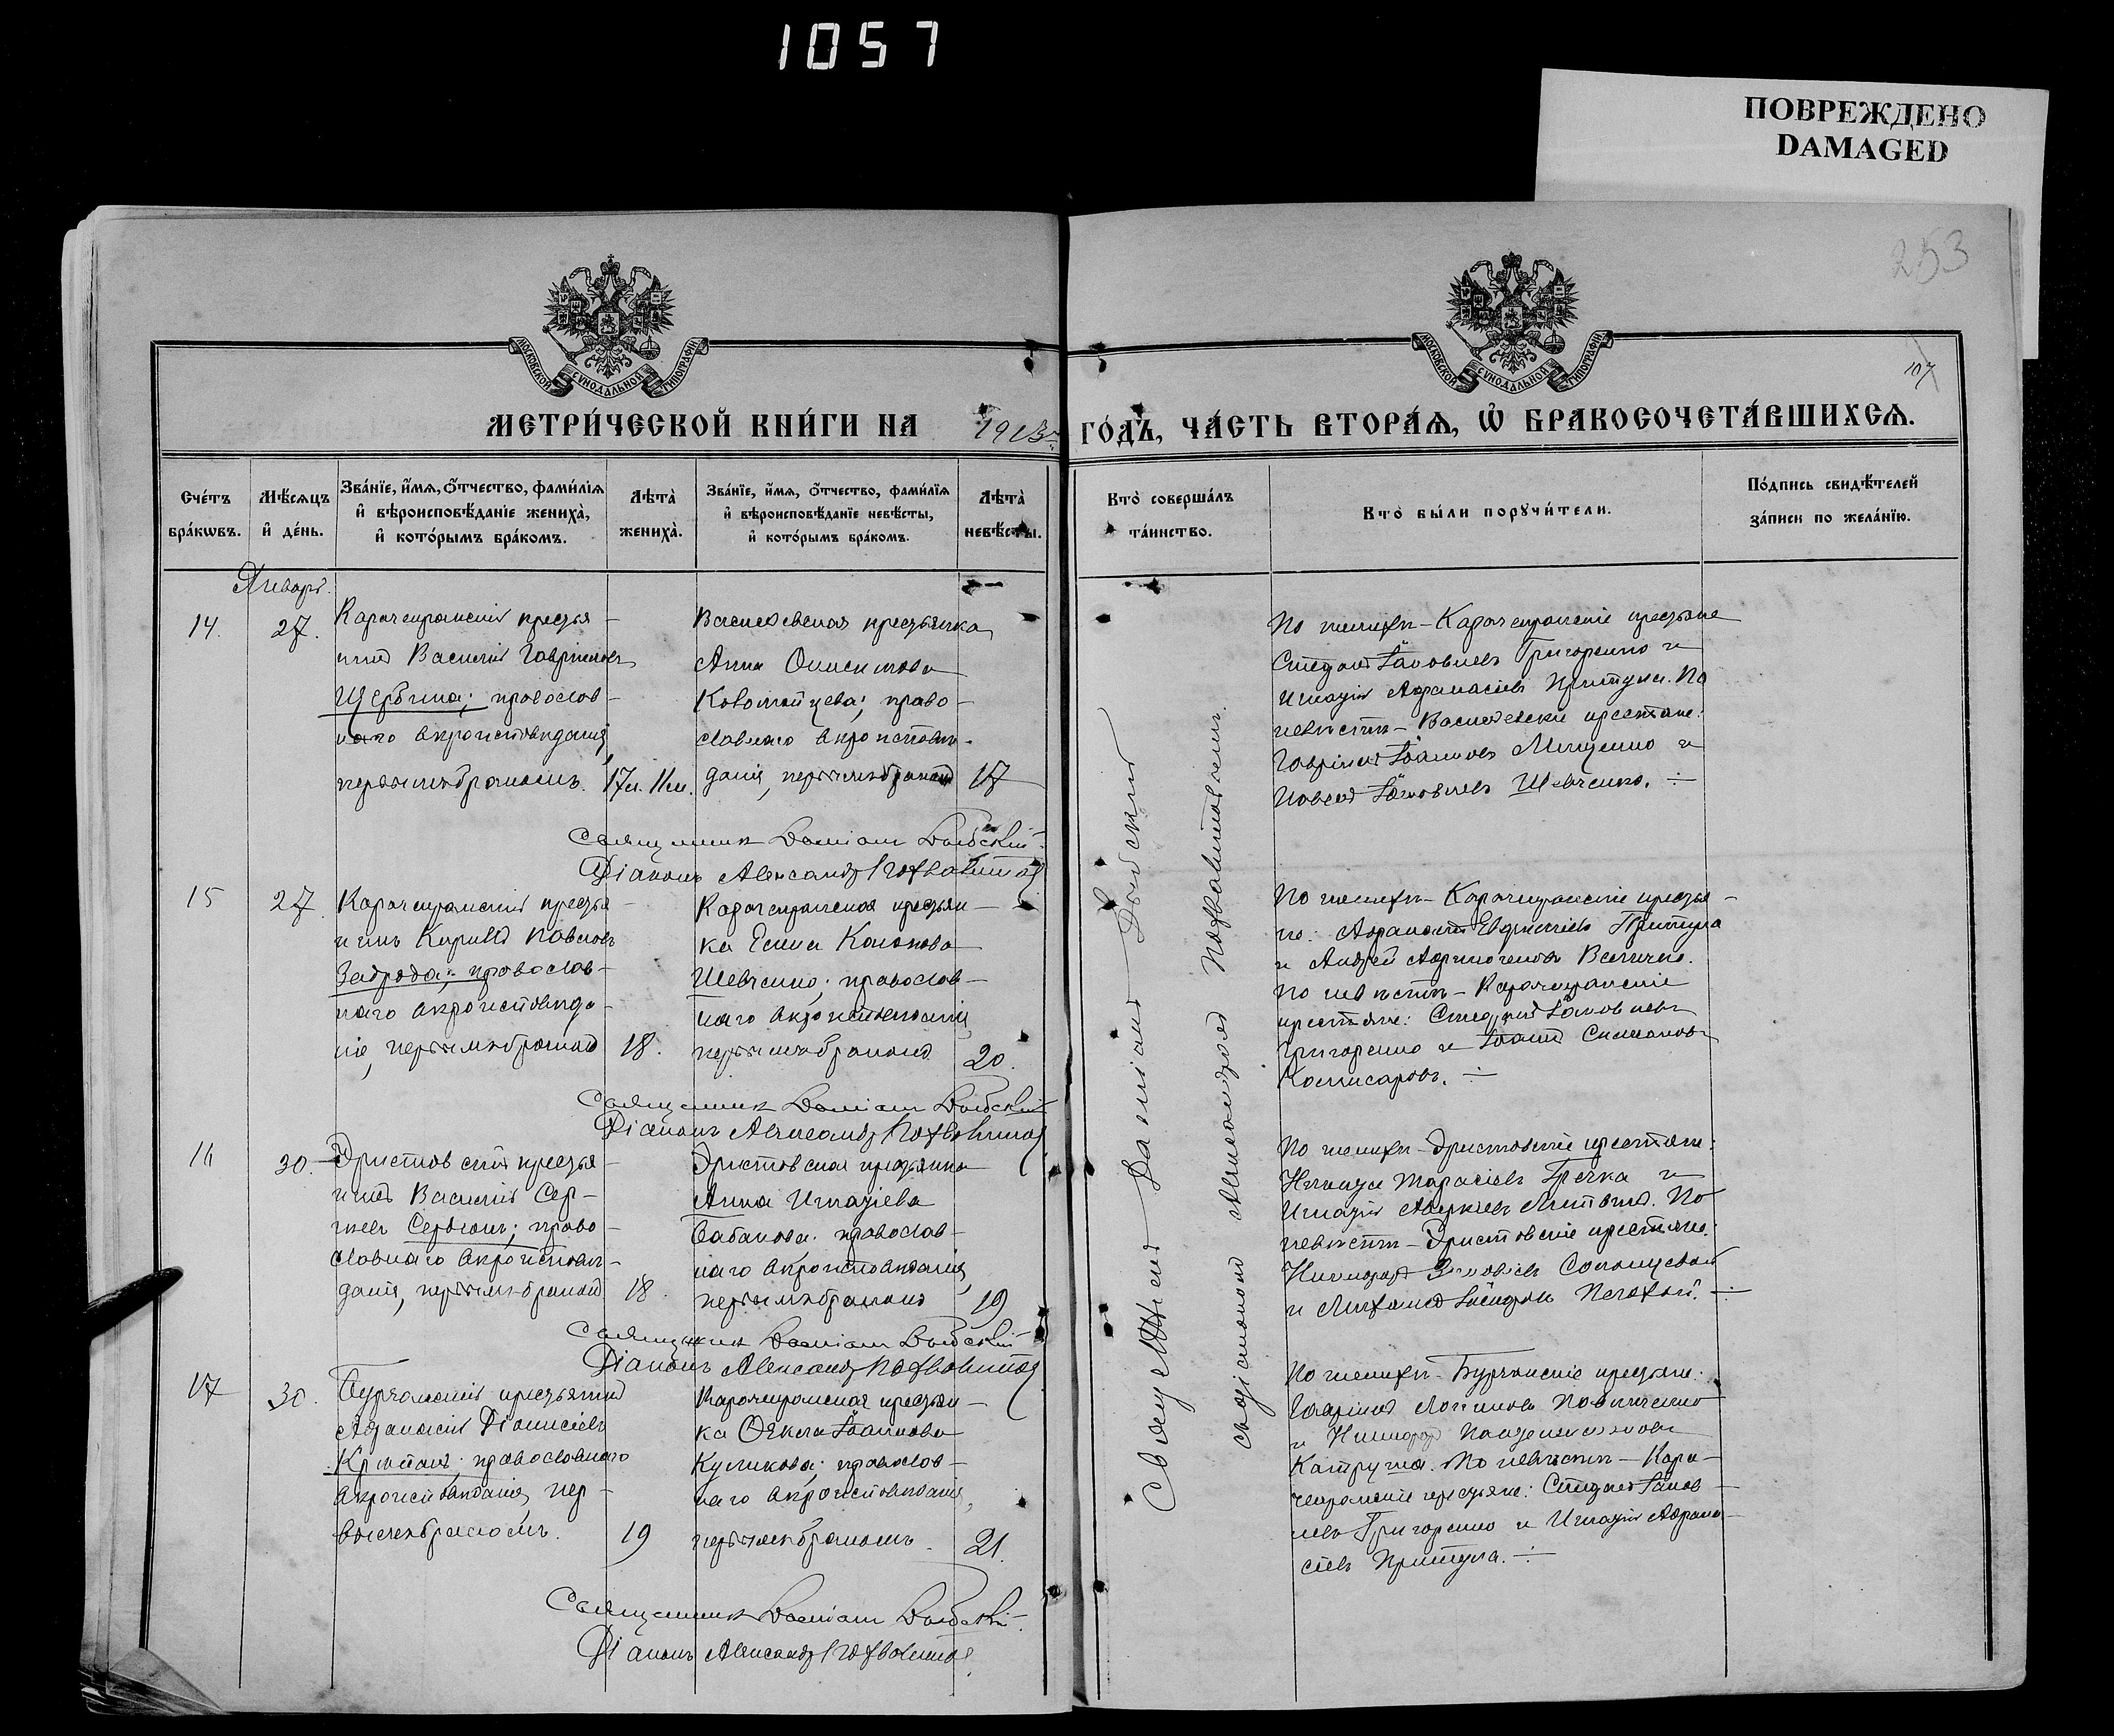 1057
ПОВРЕЖДЕНО
DAMAGED
253
107
МОСКОВСКОЙ СѴНОДАЛЬНОЙ ТИПОГРАФІИ
МОСКОВСКОЙ СѴНОДАЛЬНОЙ ТИПОГРАФІИ
МЕТРИ́ЧЕСКОЙ КНИ́ГИ НА 1913 ГО́ДЪ, ЧА́СТЬ ВТОРА́Ѧ, Ѡ҆ БРАКОСОЧЕТА́ВШИХСѦ.
Сче́тъ
бра́кѡвъ.
Мѣ́сяцъ
и҆ де́нь.
Зва́нїе, и҆́мя, ѻ҆́тчество, фами́лїя
и҆ вѣроисповѣ́данїе жениха̀,
и҆ кото́рымъ бра́комъ.
Лѣта̀
жениха̀.
Зва́нїе, и҆́мя, ѻ҆́тчество, фами́лїя
и҆ вѣроисповѣ́данїе невѣ́сты,
и҆ кото́рымъ бра́комъ.
Лѣта̀
невѣ́сты.
Кто̀ соверша́лъ
та́инство.
Кто̀ бы́ли порꙋчи́тели.
По́дпись свидѣ́телей
за́писи по жела́нїю.
Январь.
14.
27.
Карачекракскій крестья-
нинъ Василій Гавріиловъ
Щербина; православ-
наго вѣроисповѣданія,
первымъ бракомъ.
17л. 11м.
Василевская крестьянка
Анна Онисимова
Коломойцева; право-
славнаго вѣроисповѣ-
данія, первымъ бракомъ
17
По женихѣ - Карачекракскіе крестьяне
Стефанъ Іаковлевъ Григоренко и
Игнатій Афанасіевъ Притула. По
невѣстѣ - Василевскіе крестьяне:
Гавріилъ Іоанновъ Мищенко и
Павелъ Іаковлевъ Шевченко.
Священникъ Даміанъ
Діаконъ Александръ
15
27.
Карачекракскій крестья-
нинъ Кириллъ Павловъ
Заброда; православ-
наго вѣроисповѣда-
нія, первымъ бракомъ
18.
Карачекракская крестьян-
ка Елена Кононова
Шевченко; православ-
наго вѣроисповѣданія,
первымъ бракомъ
20.
По женихѣ - Карачекракскіе крестья-
не: Афанасій Евфиміевъ Притула
и Андрей
По невѣстѣ - Карачекракскіе
крестьяне: Стефанъ Іаковлевъ
Григоренко и Іоаннъ Симеоновъ
Комисаровъ.
Священникъ Даміанъ
Діаконъ Александръ
16
30.
Эристовскій крестья-
нинъ Василій Сер-
гіевъ Сердюкъ; право-
славнаго вѣроисповѣ-
данія, первымъ бракомъ
18.
Эристовская крестьянка
Анна Игнатіева
Бабакова; православ-
наго вѣроисповѣданія,
первымъ бракомъ
19
По женихѣ - Эристовскіе крестьяне:
Никита Тарасіевъ Гречка и
Игнатій Аверкіевъ Литвинъ. По
невѣстѣ - Эристовскіе крестьяне:
Никифоръ Зиновіевъ
и Михаилъ
Священникъ Даміанъ
Діаконъ Александръ
17
30.
Бурчакскій крестьянинъ
Афанасій Діонисіевъ
православнаго
вѣроисповѣданія, пер-
вымъ бракомъ.
19
Карачекракская крестьян-
ка Ѳекла Іоаннова
Куликова; православ-
наго вѣроисповѣданія,
первымъ бракомъ.
21.
По женихѣ - Бурчакскіе крестьяне:
Гавріилъ Логиновъ Павличенко
и Никифоръ Пантелеимоновъ
По невѣстѣ - Кара-
чекракскіе крестьяне: Стефанъ Іаков-
левъ Григоренко и Игнатій Афана-
сіевъ Притула.
Священникъ Даміанъ
Діаконъ Александръ
Священникъ Даміанъ
съ діакономъ Александромъ